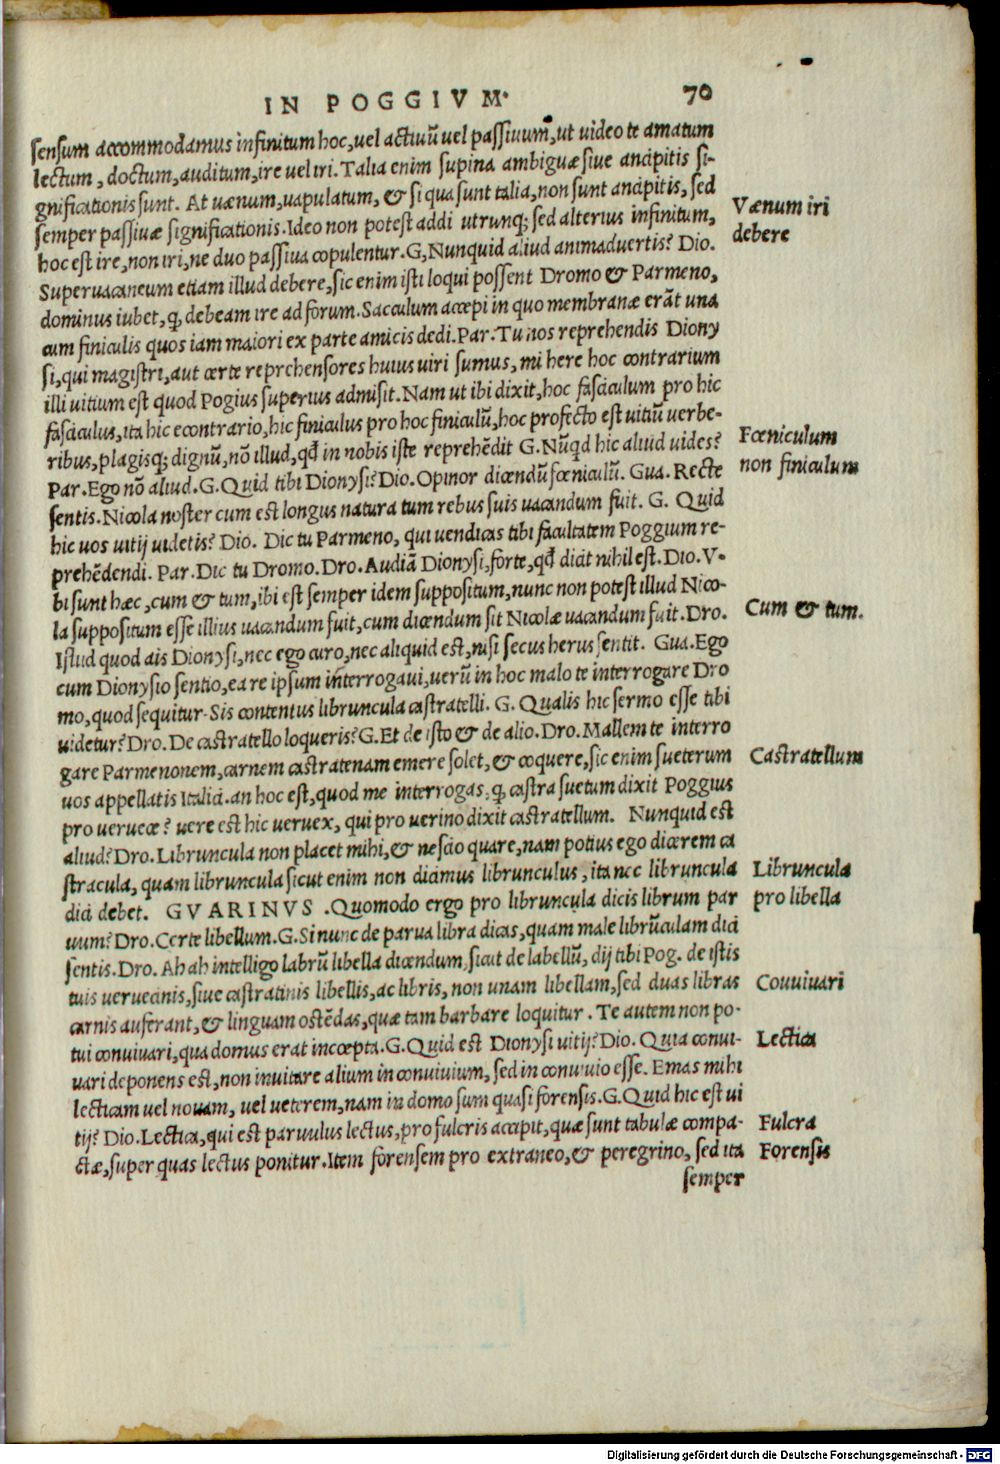 IN POGGIVM. 70
sensum accommodamus infinitum hoc, uel actiuū uel passiuum, ut uideo te amatum
lectum, doctum, auditum, ire uel iri. Talia enim supina ambiguæ siue ancipitis si-
gnificationis sunt. At uænum, uapulatum, & si qua sunt talia, non sunt ancipitis, sed
semper passiuæ significationis. Ideo non potest addi utrunq; sed alterius infinitum,
Vænum iri
hoc est ire, non iri, ne duo passiua copulentur. G, Nunquid aliud animaduertis? Dio.
debere
Superuacaneum etiam illud debere, sic enim isti loqui possent Dromo & Parmeno,
dominus iubet, q, debeam ire ad forum. Sacculum accepi in quo membranæ erāt una
cum finiculis quos iam maiori ex parte amicis dedi. Par. Tu nos reprehendis Diony
si, qui magistri, aut certe reprehensores huius uiri sumus, mi here hoc contrarium
illi uitium est quod Pogius superius admisit. Nam ut ibi dixit, hoc fasciculum pro hic
fasciculus, ita hic econtrario, hic finiculus pro hoc finiculū, hoc profecto est uitiū uerbe-
ribus, plagisq; dignū, nō illud, qđ in nobis iste reprehēdit G. Nūqd hic aliud uides?
Fœniculum
Par. Ego nō aliud. G. Quid tibi Dionysi? Dio. Opinor dicendū fœniculū. Gua. Recte
non finiculum
sentis. Nicola noster cum est longus natura tum rebus suis uacandum fuit. G. Quid
hic uos uitij uidetis? Dio. Dic tu Parmeno, qui uendicas tibi facultatem Poggium re-
prehēdendi. Par. Dic tu Dromo. Dro. Audiā Dionysi, forte, qđ dicat nihil est. Dio. V-
bi sunt hæc, cum & tum, ibi est semper idem suppositum, nunc non potest illud Nico-
la suppositum esse illius uacandum fuit, cum dicendum sit Nicolæ uacandum fuit. Dro.
Cum & tum.
Istud quod ais Dionysi, nec ego curo, nec aliquid est, nisi secus herus sentit. Gua. Ego
cum Dionysio sentio, ea re ipsum interrogaui, uerū in hoc malo te interrogare Dro
mo, quod sequitur. Sis contentus libruncula castratelli. G. Qualis hic sermo esse tibi
uidetur? Dro. De castratello loqueris? G. Et de isto & de alio. Dro. Mallem te interro
gare Parmenonem, carnem castratenam emere solet, & coquere, sic enim sueterum
Castratellum
uos appellatis Italici. an hoc est, quod me interrogas, q, castra suetum dixit Poggius
pro ueruece? uere est hic ueruex, qui pro uerino dixit castratellum. Nunquid est
aliud? Dro. Libruncula non placet mihi, & nescio quare, nam potius ego dicerem ca
stracula, quam libruncula sicut enim non dicimus librunculus, ita nec libruncula
Libruncula
dici debet. GVARINVS. Quomodo ergo pro libruncula dicis librum par
pro libella
uum? Dro. Certe libellum. G. Si nunc de parua libra dicas, quam male librūculam dici
sentis. Dro. Ah ah intelligo labrū libella dicendum, sicut de labellū, dij tibi Pog. de istis
tuis ueruecinis, siue castratinis libellis, ac libris, non unam libellam, sed duas libras
Couuiuari
carnis auferant, & linguam ostēdas, quæ tam barbare loquitur. Te autem non po-
tui conuiuari, qua domus erat incœpta. G. Quid est Dionysi uitij? Dio. Quia conui-
Lectica
uari deponens est, non inuitare alium in conuiuium, sed in conuiuio esse. Emas mihi
lecticam uel nouam, uel ueterem, nam in domo sum quasi forensis. G. Quid hic est ui
tij? Dio. Lectica, qui est paruulus lectus, pro fulcris accipit, quæ sunt tabulæ compa-
Fulcra
ctæ, super quas lectus ponitur. Item forensem pro extraneo, & peregrino, sed ita
Forensis
semper
Digitalisierung gefördert durch die Deutsche Forschungsgemeinschaft - DFG